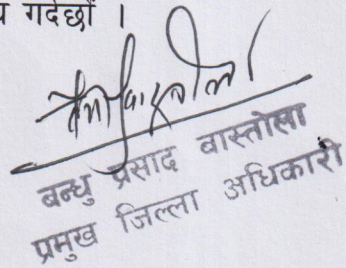 गर्दछौं ।
बन्धु प्रसाद बास्तोला
प्रमुख जिल्ला अधिकारी